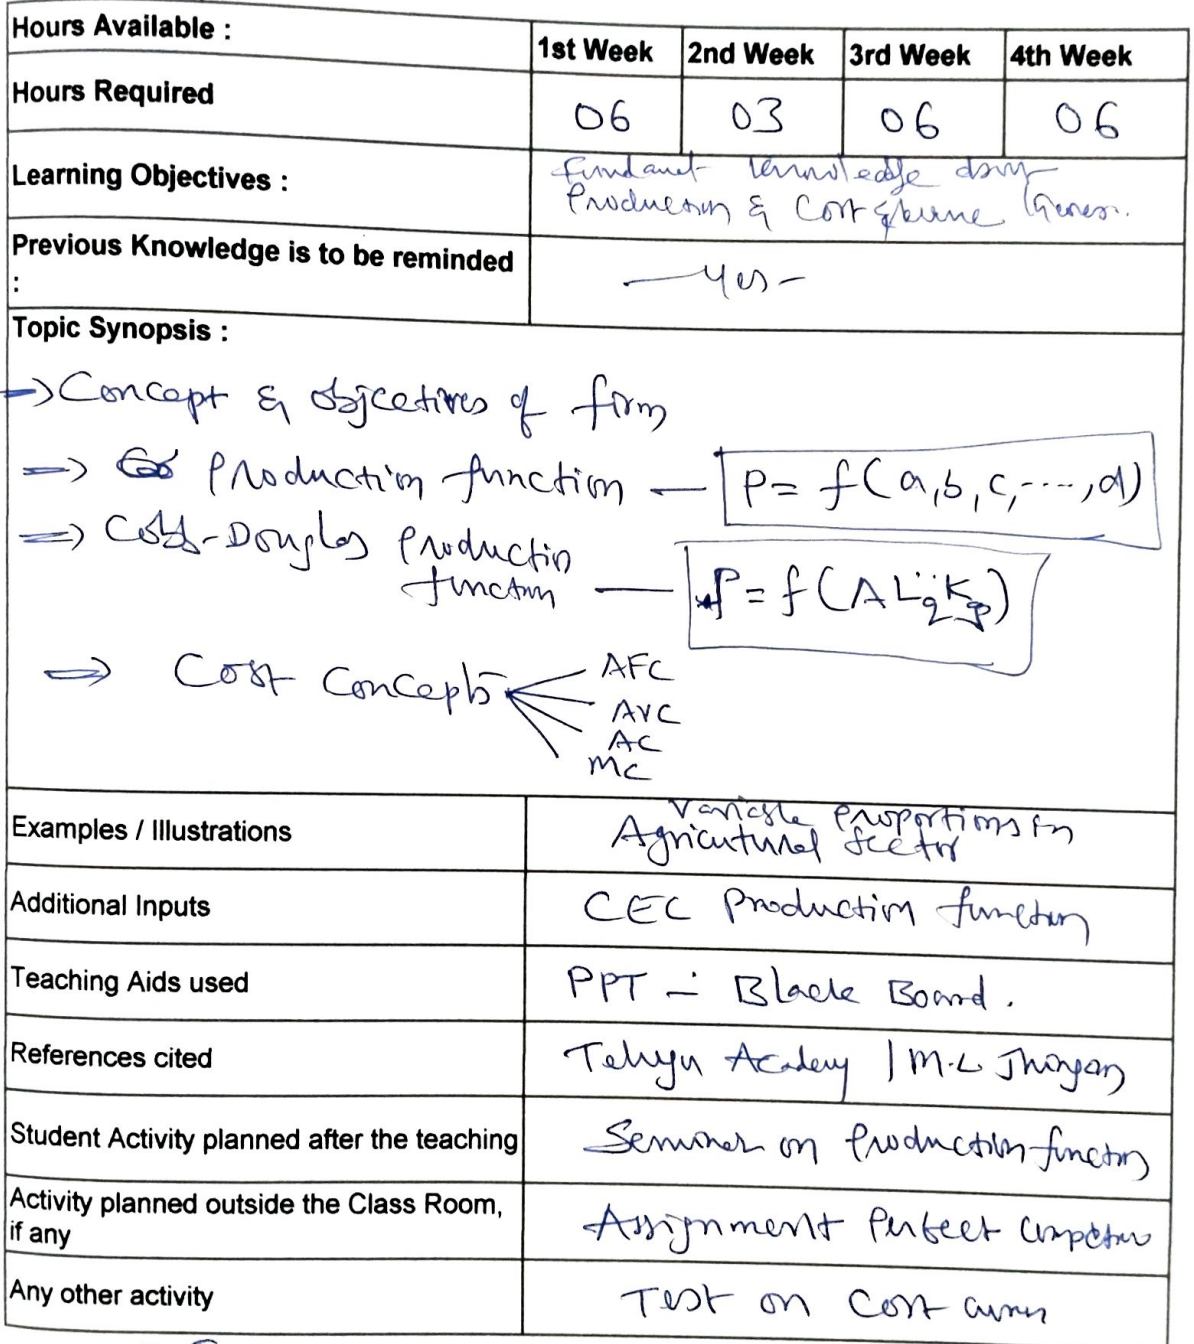 Hours Available :
1st Week 2nd Week 3rd Week 4th Week
Hours Required 06 03 06 06
Learning Objectives : knowledge
Production & Cost &
Previous Knowledge is to be reminded
: — Yes -
Topic Synopsis :
→ Concept & objcetives of firm
⇒ Production function — P = f(a,b,c,----,d)
⇒ Cobb-Douglas Productio
function — P = f(AL K )
⇒ Cost Concepts AFC
AVC
AC
MC
Examples / Illustrations Variable Proportions in
Agricutural Sector
Additional Inputs CEC Production function
Teaching Aids used PPT - Black Board.
References cited Telugu Academy / M.L Jhingan
Student Activity planned after the teaching Seminar on Production function
Activity planned outside the Class Room,
if any Assignment Perfect
Any other activity Test on Cost curves